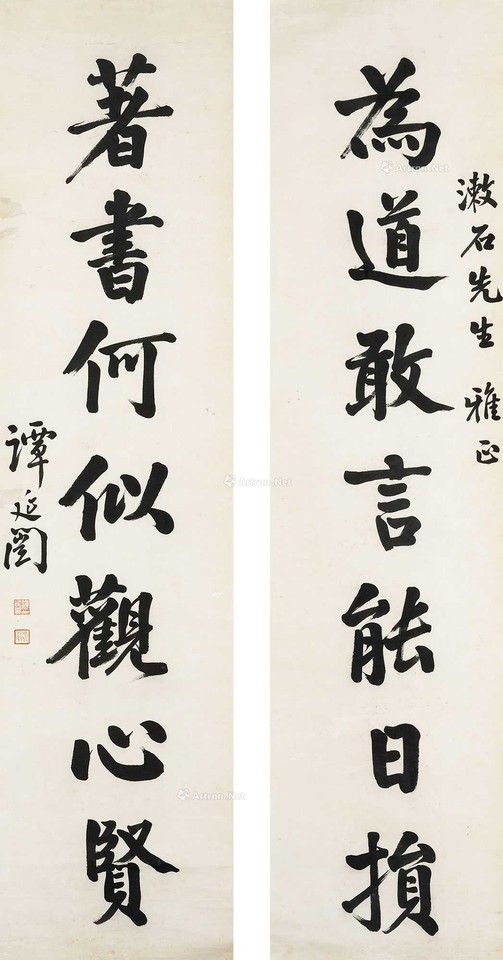 漱石先生 雅正
為道敢言能日損
著書何似觀心賢
譚延闓
Artron.Net
Artron.Net
Artron.Net